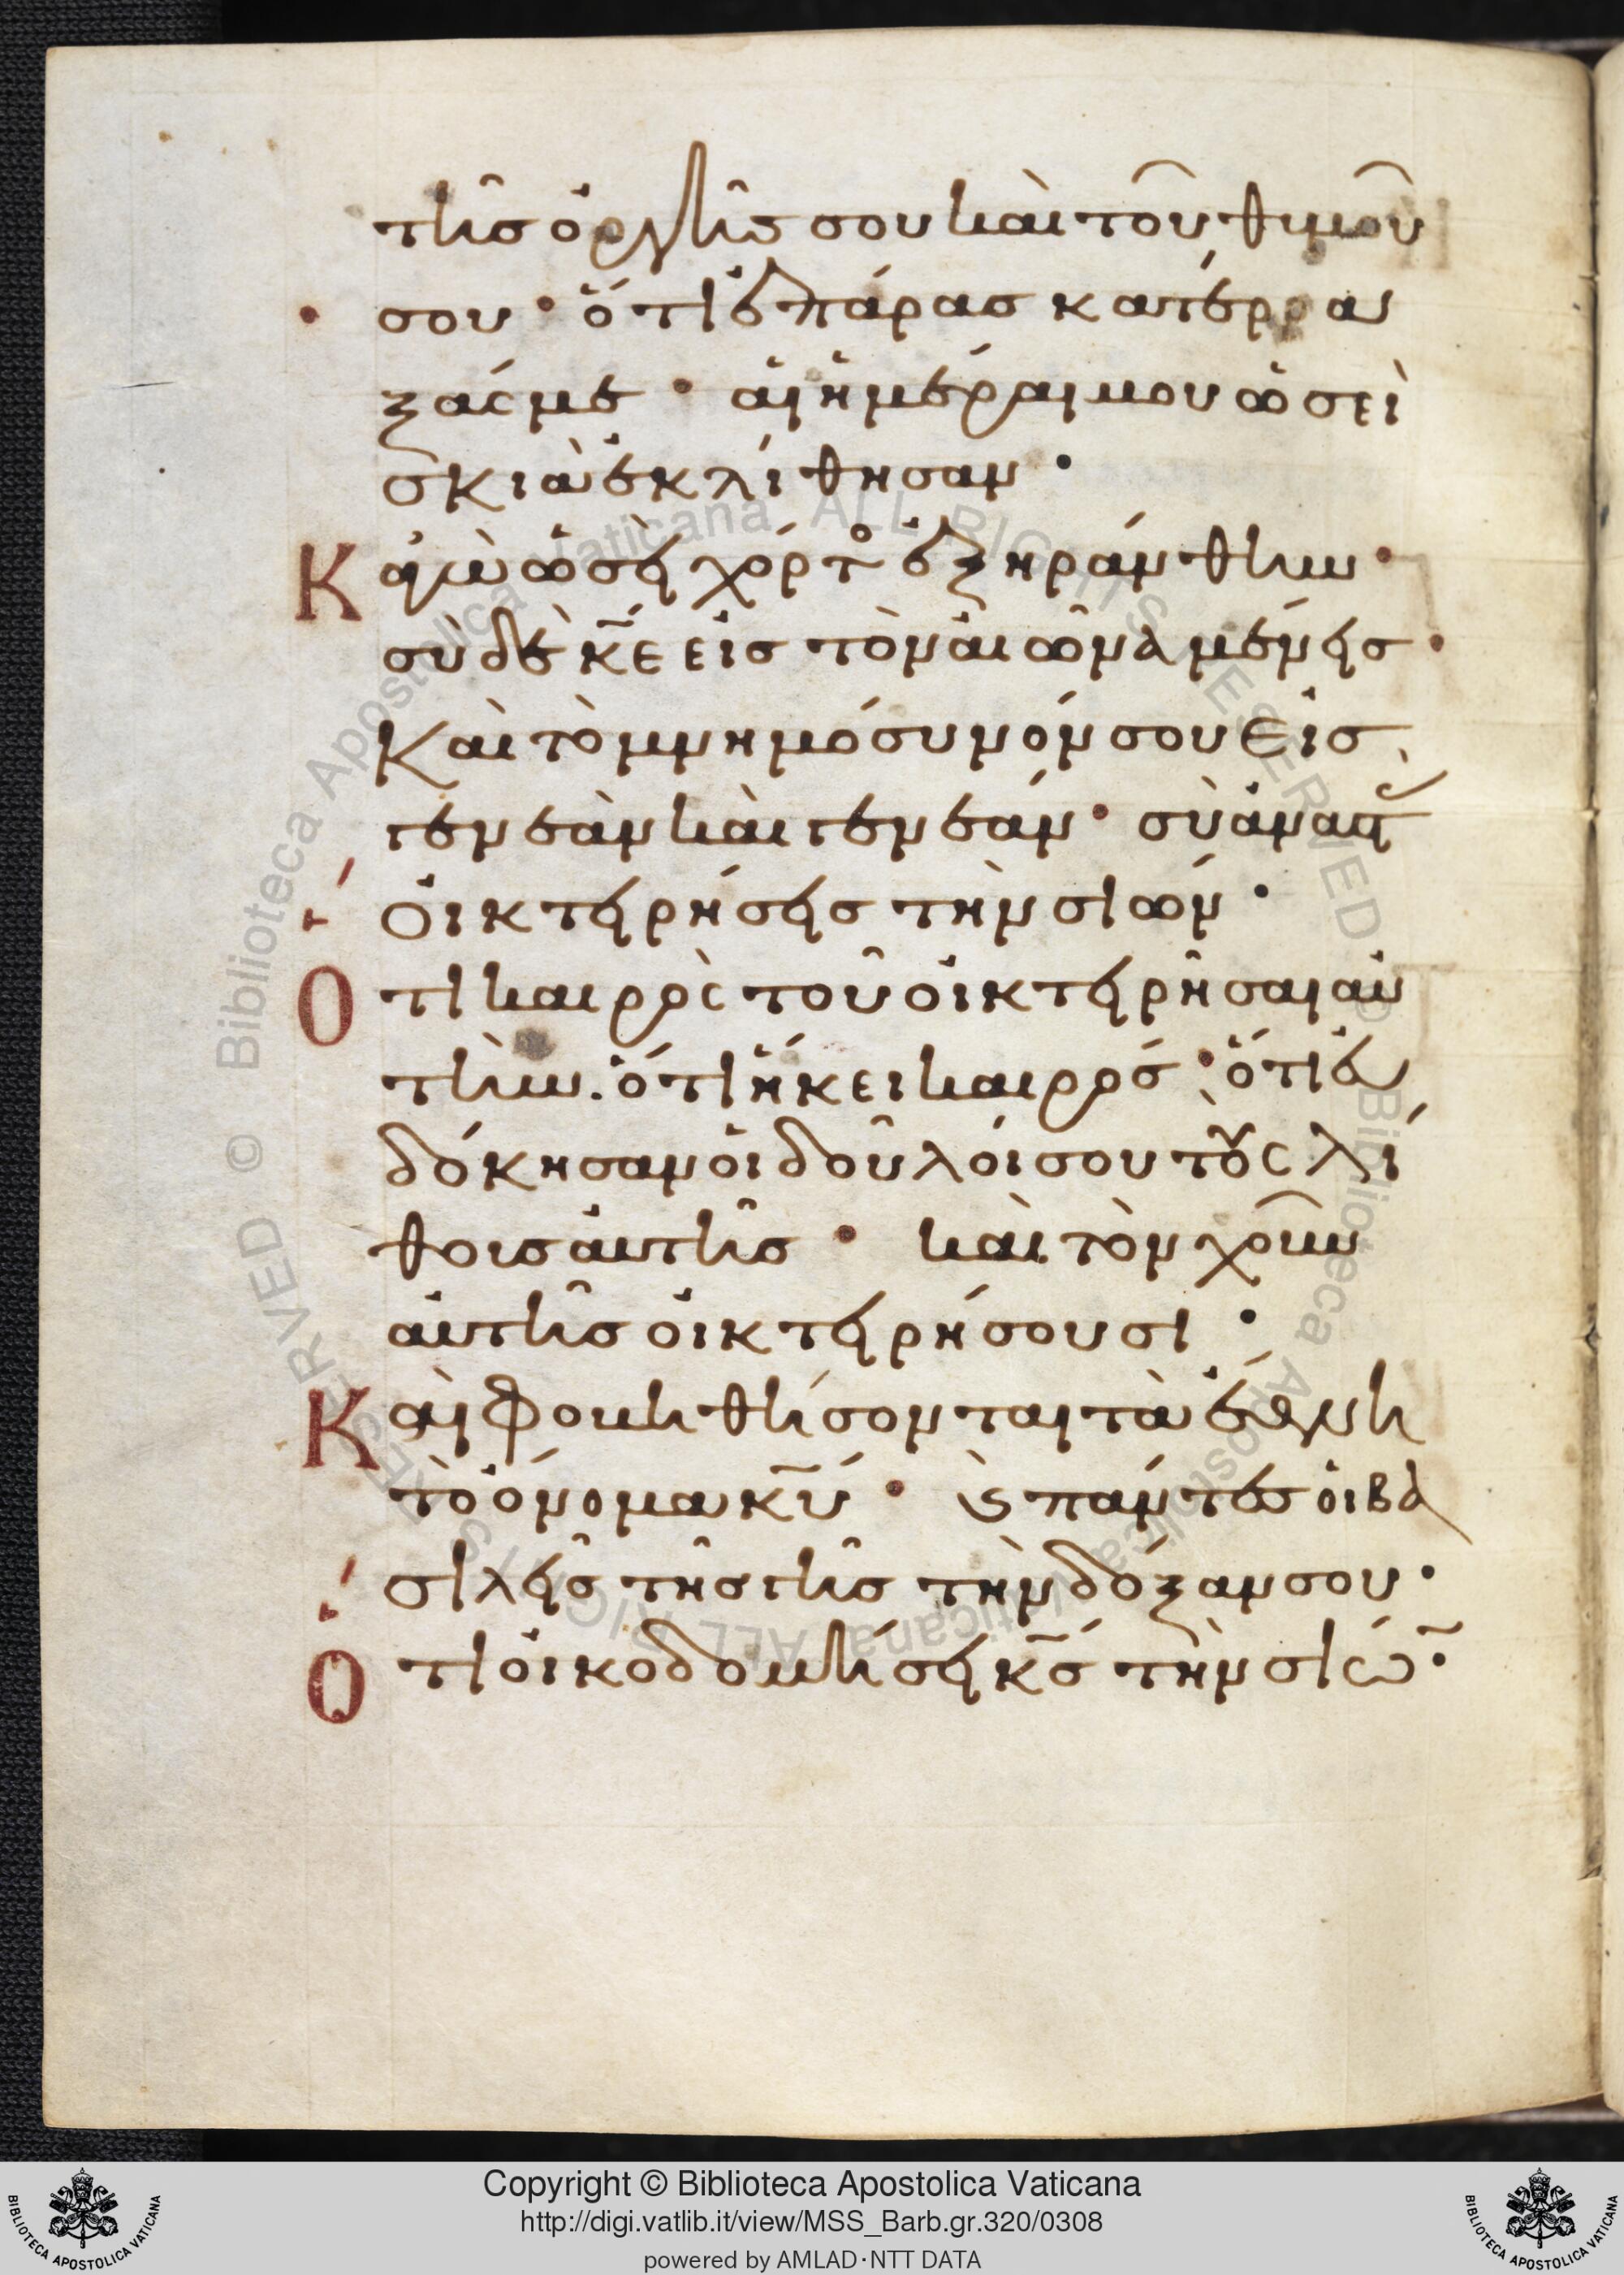 τῆσ ὀργῆσ σου καὶ τοῦ θυμοῦ
σου · ὅτι ἐπάρασ κατέρρα
ξάς με · αἱ ἡμέραι μου ὡσεὶ
σκιὰ ἐκλίθησαν ·
Κ ἀγὼ ὡσεὶ χόρτο ἐξηράνθην ·
σὺ δὲ κ̅ε εἰσ τὸν αἰῶνα μένεισ ·
Καὶ τὸ μνημόσυνόν σου εἰσ
γενεὰν καὶ γενεάν · σὺ ἀναστ
οἰκτειρήσεισ τὴν σιών ·
Ο τι καιρὸς τοῦ οἰκτειρῆσαι αὐ
τήν. ὅτι ἥκει καιρόσ · ὅτι εὐ
δόκησαν οἱ δοῦλοί σου τοὺς λί
θουσ αὐτῆσ · καὶ τὸν χοῦν
αὐτῆσ οἰκτειρήσουσι ·
Κ αὶ φοβηθήσονται τὰ ἔθνη
τὸ ὄνομα κ̅υ · ϗ πάντεσ οἱ βα
σιλεῖσ τῆσ γῆσ τὴν δόξαν σου ·
Ο τι οἰκοδομήσει κ̅σ τὴν σιώ̅ ·
Copyright © Biblioteca Apostolica Vaticana
http://digi.vatlib.it/view/MSS_Barb.gr.320/0308
powered by AMLAD·NTT DATA
BIBLIOTECA APOSTOLICA VATICANA
BIBLIOTECA APOSTOLICA VATICANA